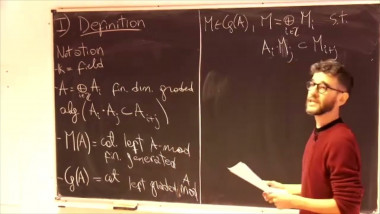 I) Definition
Notation
k = field
- A = ⊕ A_i fin. dim. graded
i∈Z
alg (A_i · A_j ⊂ A_{i+j})
- M(A) = cat left A-mod
fin. generated
- Cg(A) = cat left graded A-mod
M ∈ Cg(A), M = ⊕ M_i s.t.
i∈Z
A_i M_j ⊂ M_{i+j}